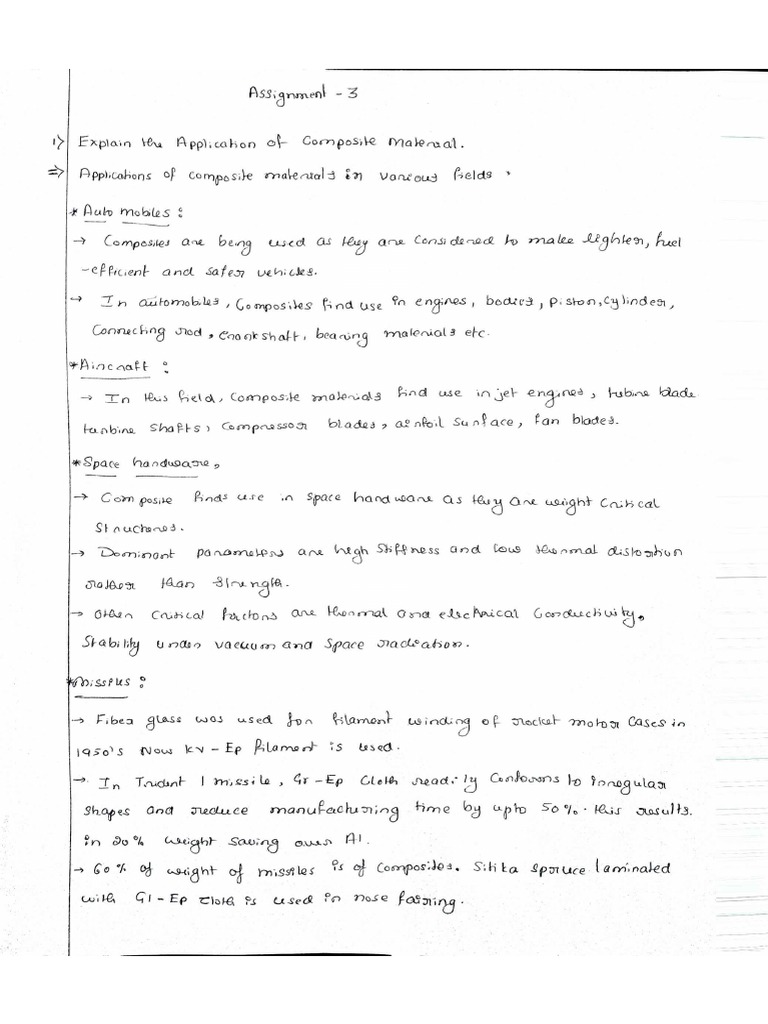 Assignment - 3
1) Explain the Application of Composite Material.
=> Applications of composite materials in various fields.
* Auto mobiles :
→ Composites are being used as they are considered to make lighter, fuel
-efficient and safer vehicles.
→ In automobiles, Composites find use in engines, bodies, piston, cylinder,
Connecting rod, crankshaft, bearing materials etc.
* Aircraft :
→ In this field, composite materials find use in jet engines, tubine blade
turbine shafts, compressor blades, airfoil surface, fan blades.
* Space hardware,
→ Composite finds use in space hardware as they are weight critical
Structures.
→ Dominant parameters are high stiffness and low thermal distortion
rather than strength.
→ Other critical factors are thermal and electrical conductivity,
Stability under vacuum and space radiation.
* Missiles :
→ Fiber glass was used for filament winding of rocket motor cases in
1950's Now kv - Ep filament is used.
→ In Trident 1 missile, Gr-Ep Cloth readily Conforms to irregular
shapes and reduce manufacturing time by upto 50%. this results
in 20% weight saving over Al.
→ 60% of weight of missiles is of composites. Sitika spruce laminated
with Gl-Ep cloth is used in nose fairing.